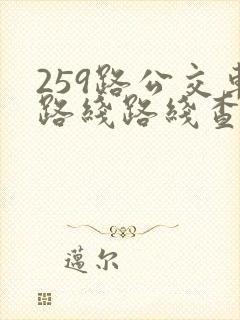 259路公交车
路线路线查
邁尔